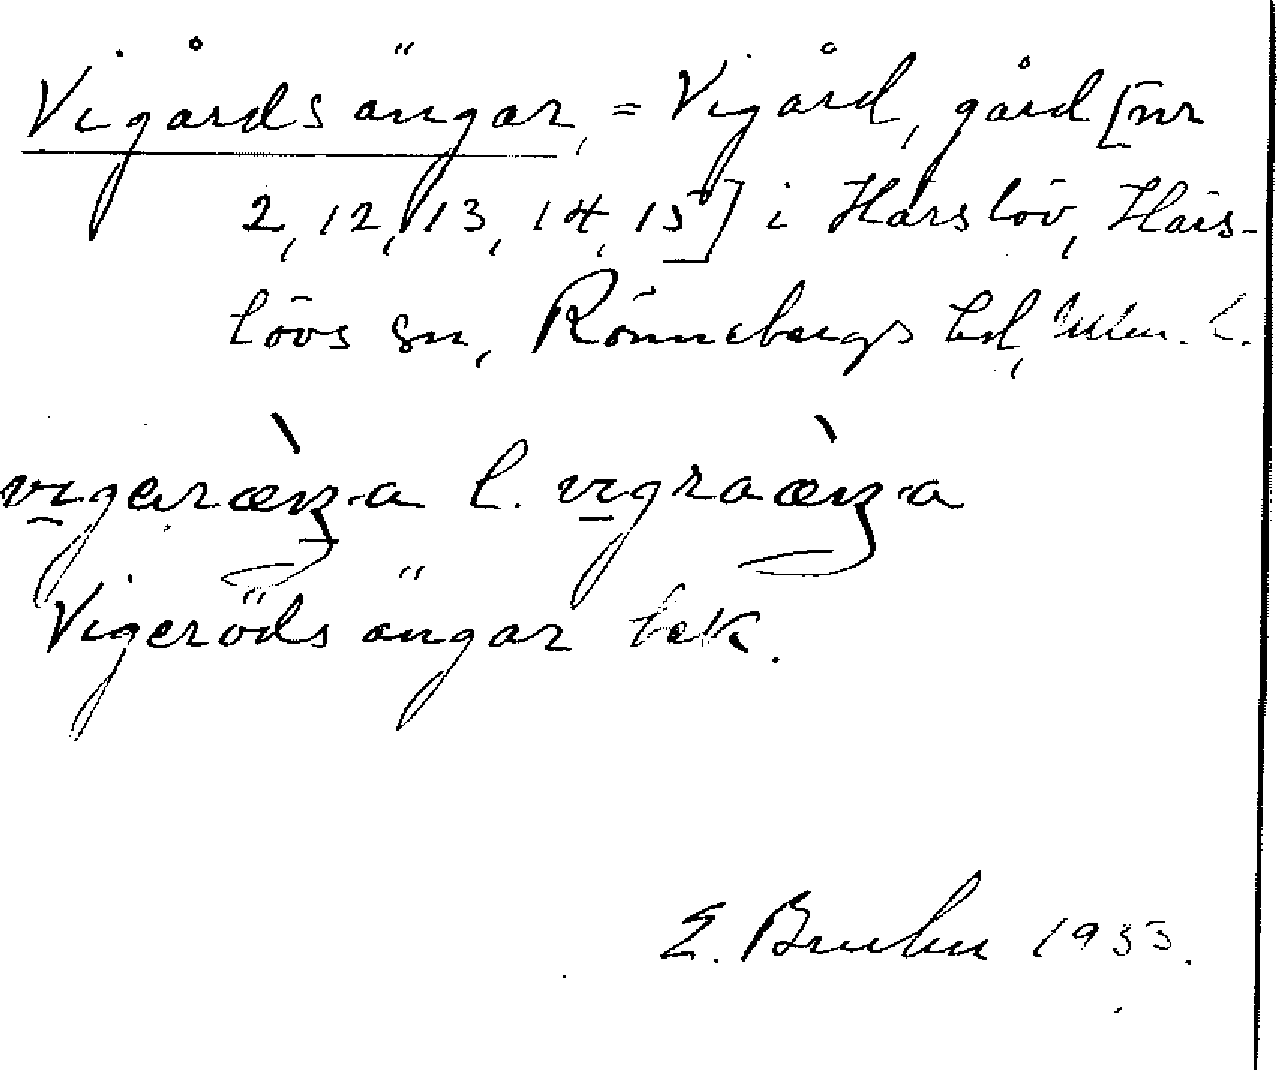 Vigårdsängar, = Vigård, gård [nr
2, 12, 13, 14, 15] i Härslöv, Härs-
lövs sn, Rönnebergs hd, Mlm. l.
vigaræŋa l. vigraæŋa
Vigerödsängar bek.
E. Bruhn 1933.